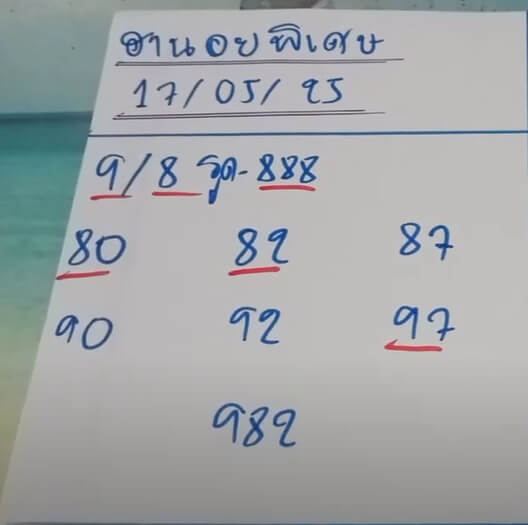 ฮานอยพิเศษ
17/05/25
9/8 รูด-888
80 82 87
90 92 97
982